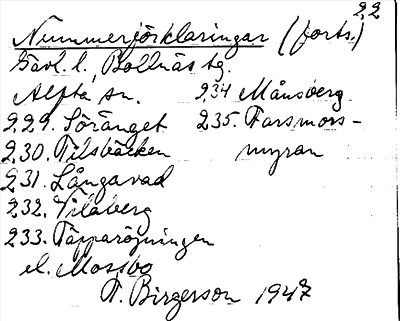 22
Nummerförklaringar (forts.)
Gävl. l., Bollnäs tg.
Alfta sn.
229. Söränget
230. Tilsbäcken
231. Långavad
232. Vilaberg
233. Täpparöjningen
el. Mossbo
234 Månsberg
235. Farsmors-
myran
F. Birgerson 1947